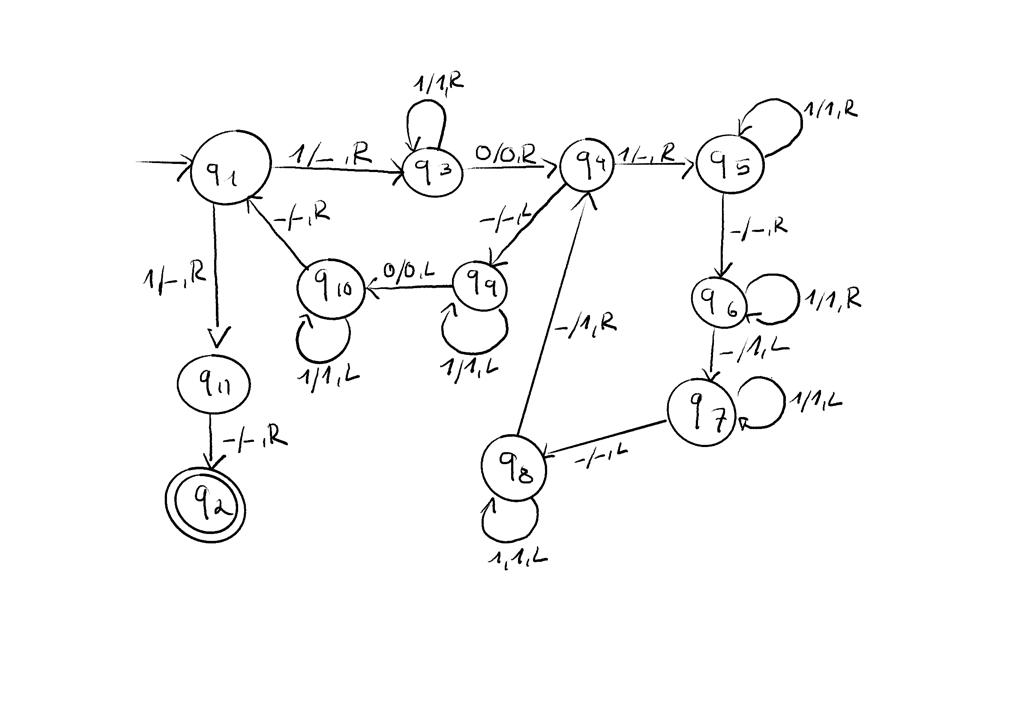 1/1,R
1/1,R
q1
1/-,R
q3
0/0,R
q4
1/-,R
q5
-/-,R
-/-,L
-/-,R
1/-,R
q10
0/0,L
q9
q6
1/1,R
-/1,R
1/1,L
1/1,L
-/1,L
q11
q7
1/1,L
-/-,R
-/-,L
q8
q2
1,1,L